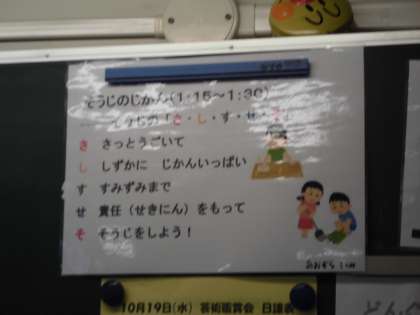 そうじのじかん(1:15〜1:30)
そうじの「さ・し・す・せ・そ」
さ さっとうごいて
し しずかに じかんいっぱい
す すみずみまで
せ 責任（せきにん）をもって
そ そうじをしよう！
10月19日(水) 芸術鑑賞会 日課表